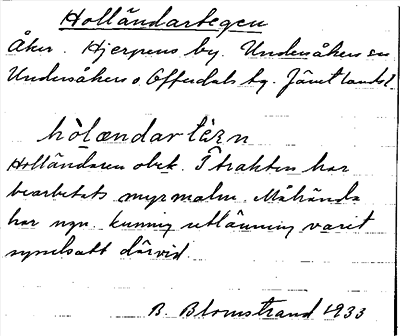 Holländartegen
Åker. Hjerpens by. Undersåkers sn
Undersåkers o. Offerdals tg. Jämtlands l.
hòlændartèg̣n
Holländaren obek. I trakten har
bearbetats myrmalm. Måhända
har ngn. kunnig utlänning varit
sysselsatt därvid.
B. Blomstrand 1933